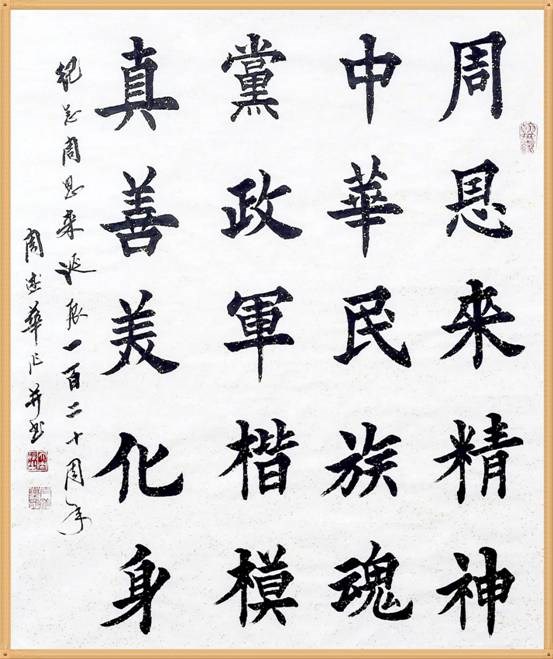 周恩來精神
中華民族魂
黨政軍楷模
真善美化身
纪念周恩来诞辰一百二十周年
周志華作并书